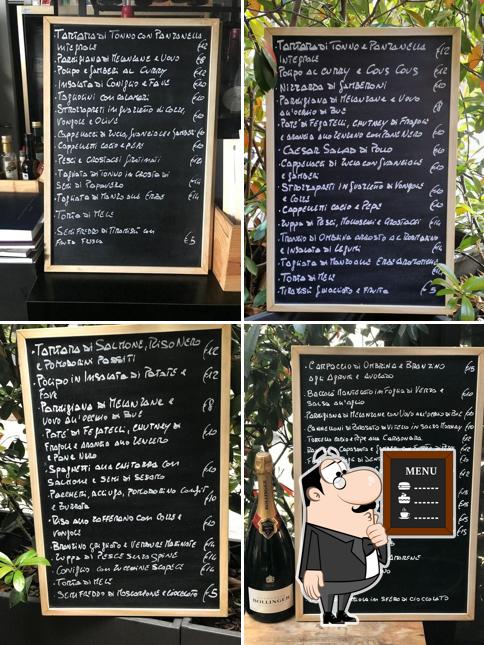 TARTARA DI TONNO CON PANZANELLA
INTEGRALE €12
PARMIGIANA DI MELANZANE E UOVO €8
POLIPO E GAMBERI AL CURRY €12
INSALATA DI CONIGLIO E FAVE €10
TAGLIOLINI CON CALAMARI €10
STROZZAPRETI IN GUAZZETTO DI COZZE,
VONGOLE E OLIVE €10
CAPPELLACCI DI ZUCCA, GUANCIALE E GAMBERI €10
CAPPELLETTI CACIO E PEPE €10
PESCI E CROSTACEI GRATINATI €18
TAGLIATA DI TONNO IN CROSTA DI
SEMI DI PAPAVERO €14
TAGLIATA DI MANZO ALLE ERBE €14
TORTA DI MELE
SEMIFREDDO DI TIRAMISÙ CON
FAVA TONKA €5
TARTARA DI TONNO E PANZANELLA €12
INTEGRALE
POLIPO AL CURRY E COUS COUS €12
NIZZARDA DI GAMBERONI €10
PARMIGIANA DI MELANZANE E UOVO
ALL'OCCHIO DI BUE €8
PATÈ DI FEGATELLI, CHUTNEY DI FRAGOLE
E ARANCIA ALLO ZENZERO CON PANE NERO €10
CAESAR SALAD DI POLLO €10
CAPPELLACCI DI ZUCCA CON GUANCIALE
E GAMBERI €10
STROZZAPRETI IN GUAZZETTO DI VONGOLE
E COZZE €10
CAPPELLETTI CACIO E PEPE €10
ZUPPA DI PESCI, MOLLUSCHI E CROSTACEI €14
TRANCIO DI OMBRINA ARROSTO AL ROSMARINO
E INSALATA DI LEGUMI €14
TAGLIATA DI MANZO ALLE ERBE AROMATICHE
TORTA DI MELE €14
TIRAMISÙ GHIACCIATO E FRUTTA €5
TARTARA DI SALMONE, RISO NERO
E POMODORINI PASSITI €12
POLIPO IN INSALATA DI PATATE E €12
FAVE
PARMIGIANA DI MELANZANE E
UOVO ALL'OCCHIO DI BUE €8
PATÈ DI FEGATELLI, CHUTNEY DI
FRAGOLA E ARANCIA ALLO ZENZERO €10
E PANE NERO
SPAGHETTI ALLA CHITARRA CON
SALMONE E SEMI DI SESAMO €10
PACCHERI, ACCIUGA, POMODORINO CONFIT
E BURRATA €10
RISO ALLO ZAFFERANO CON COZZE E
VONGOLE €10
BRANZINO GRIGLIATO E VERDURE MARINATE €14
ZUPPA DI PESCE SENZA SPINE €14
CONIGLIO CON ZUCCHINE SCAPECE €14
TORTA DI MELE
SEMIFREDDO DI MASCARPONE E CIOCCOLATO €5
CARPACCIO DI OMBRINA E BRANZINO €15
AGLI AGRUMI E AVOCADO
BACCALÀ MANTECATO IN FOGLIA DI VERZA E
SALSA ALL'AGLIO
PARMIGIANA DI MELANZANE CON UOVO ALL'OCCHIO DI BUE
CANNELLONI DI BRASATO DI VITELLO IN SALSA MORNAY
TORTELLI CACIO E PEPE ALLA CARBONARA
MENU
AMARENE
IN SFERA DI CIOCCOLATO
BOLLINGER